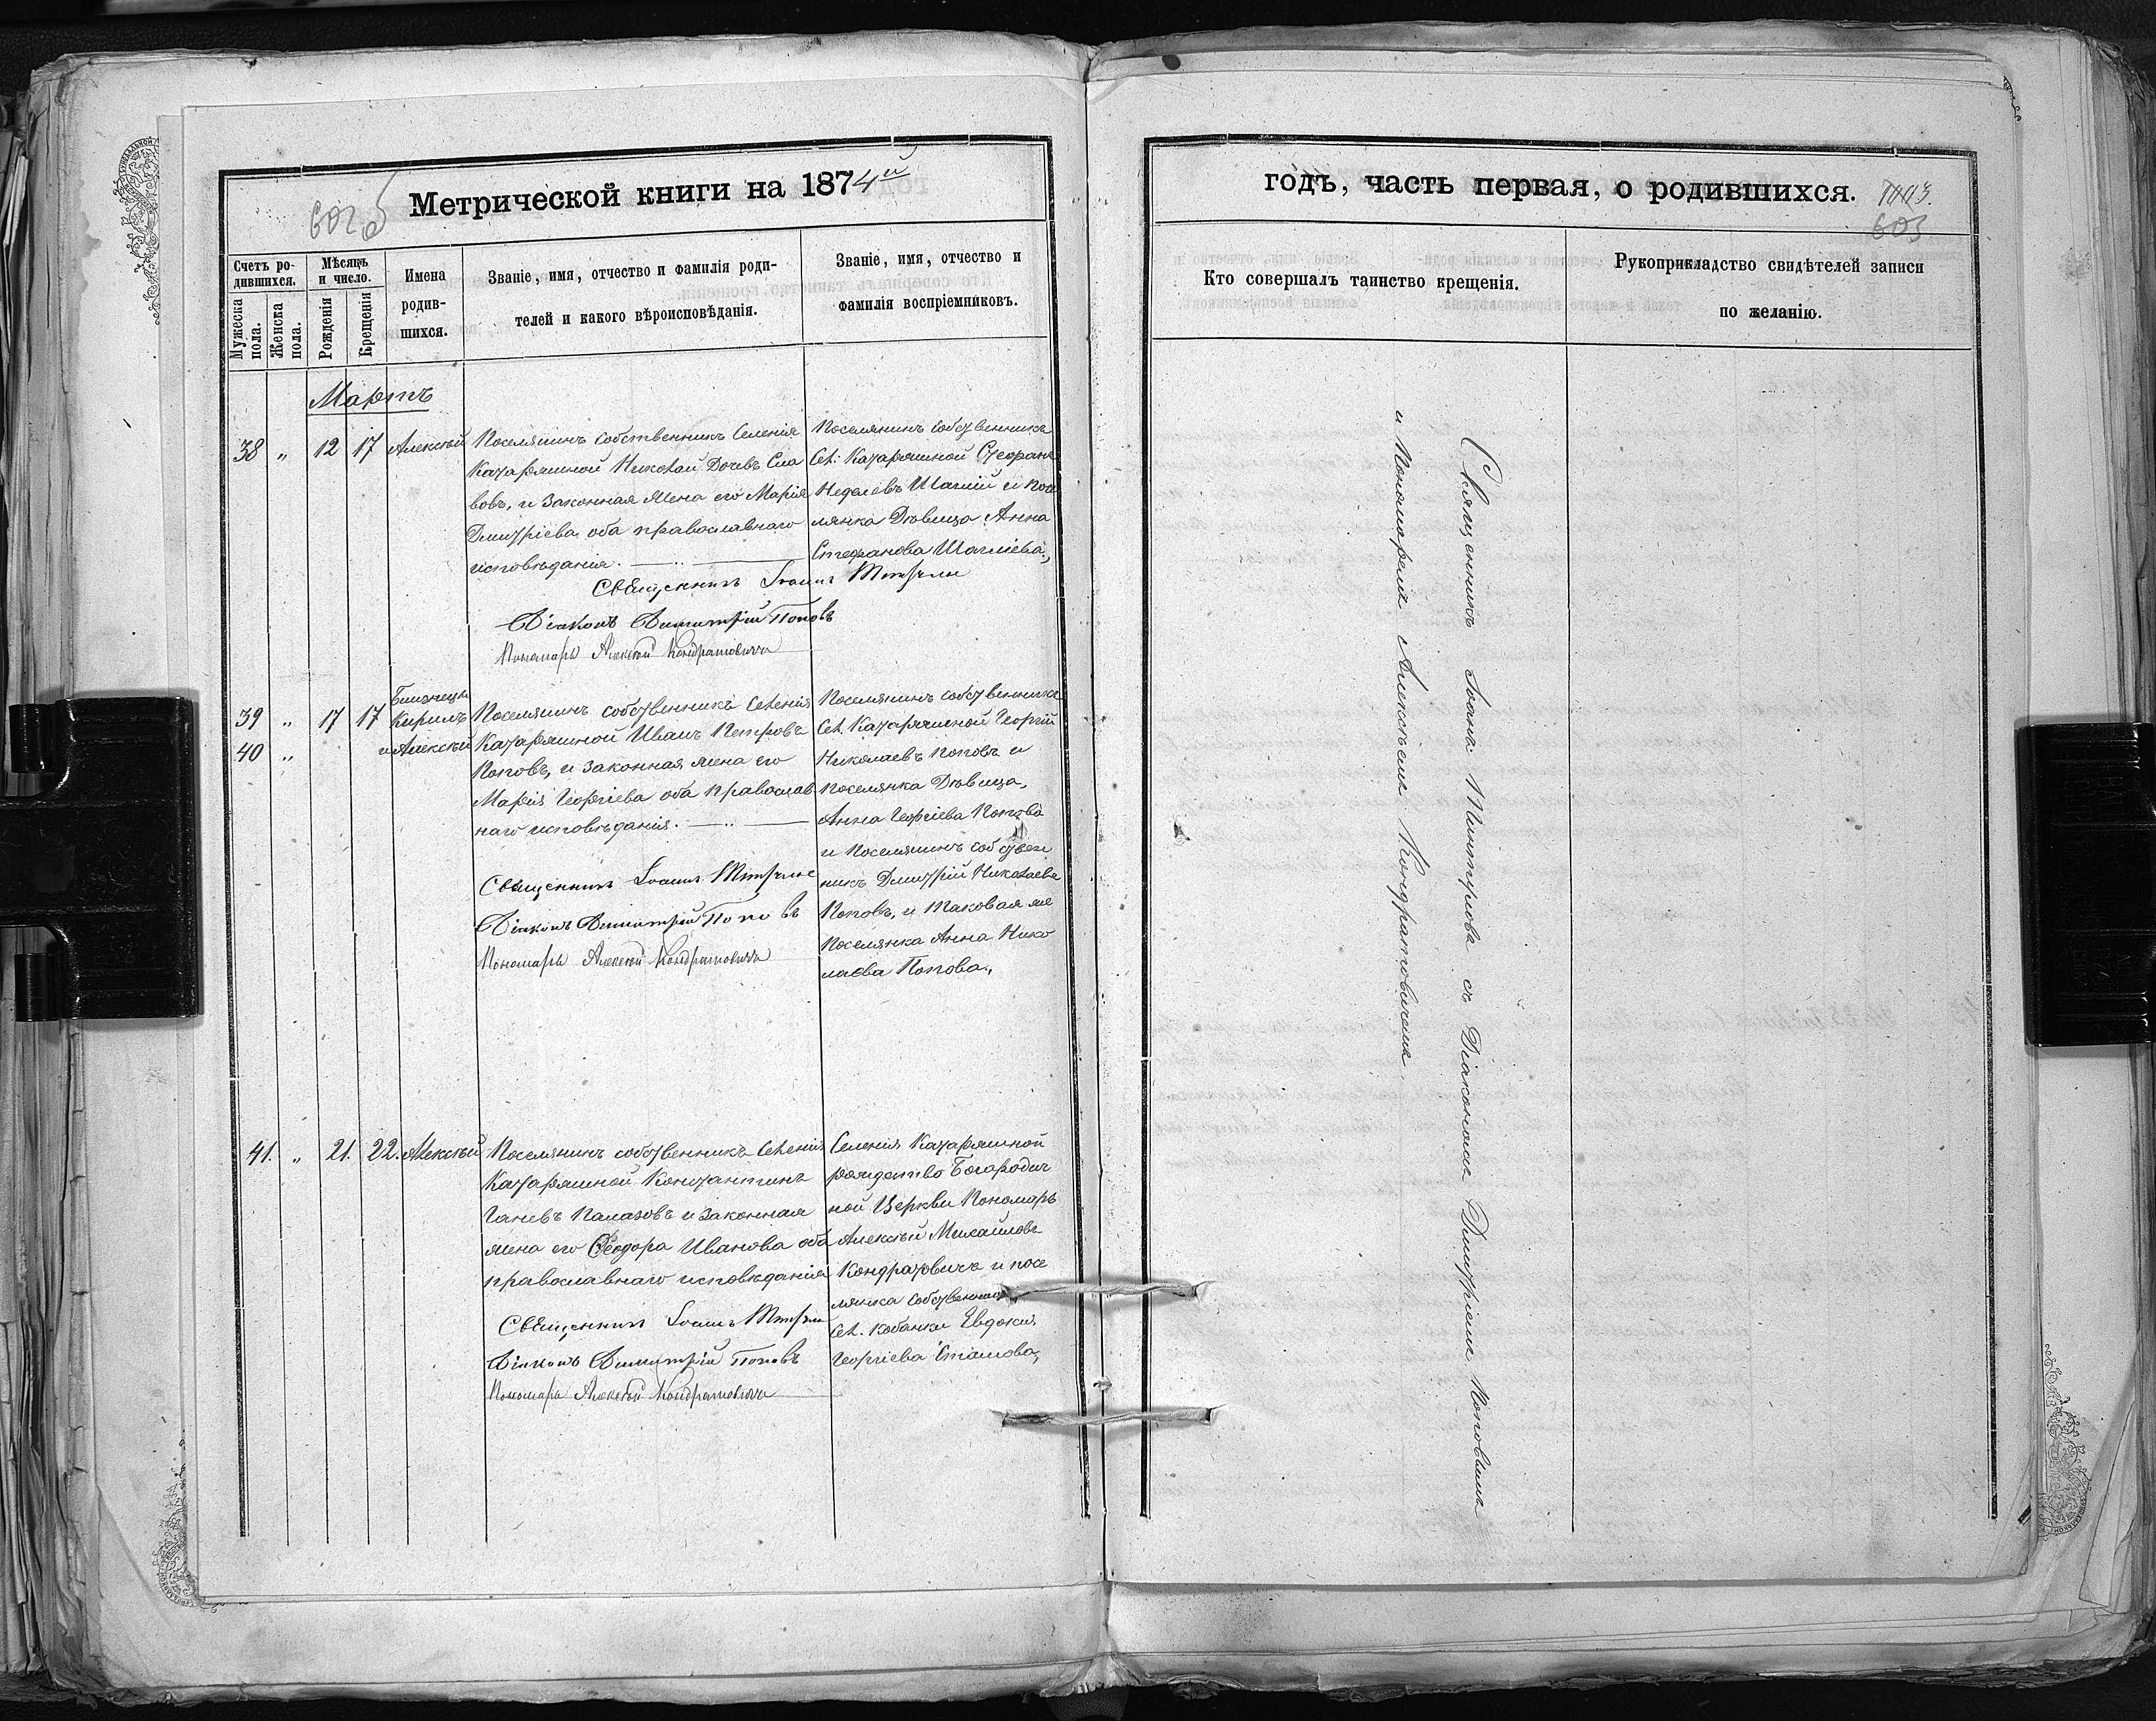 Метрической книги на 1874й
602б
Счетъ ро-
дившихся.
Мужеска
пола.
Женска
пола.
Мѣсяцъ
и число.
Рожденія
Крещенія
Имена
родив-
шихся.
Званіе, имя, отчество и фамилія роди-
телей и какого вѣроисповѣданія.
Званіе, имя, отчество и
фамилія воспріемниковъ.
Мартъ
38 „ 12 17 Алексѣй
Поселянинъ собственникъ Селенія
Катаржиной Николай Дочевъ Сла
вовъ, и законная жена его Марія
Дмитріева оба православнаго
исповѣданія.
Поселянинъ собственникъ
Сел: Катаржиной Стефанъ
Неделевъ и посе
лянка Дѣвица Анна
Стефанова
Священникъ Іоаннъ
Діаконъ Димитрій Поповъ
Пономарь Алексѣй Кондратовичъ
39 „ 17 17
40 „
Близнецы
Кирилъ
и Алексѣй
Поселянинъ собственникъ Селенія
Катаржиной Иванъ Петровъ
Поповъ, и законная жена его
Марія Георгіева оба православ
наго исповѣданія.
Поселянинъ собственникъ
Сел. Катаржиной Георгій
Николаевъ Поповъ и
поселянка Дѣвица,
Анна Георгіева Попова
и Поселянинъ собствен
никъ Дмитрій Николаевъ
Поповъ, и таковая же
Поселянка Анна Нико
лаева Попова.,
Священникъ Іоаннъ
Діаконъ Димитрій Поповъ
Пономарь Алексѣй Кондратовичъ
41. „ 21. 22. Алексѣй
Поселянинъ собственникъ Селенія
Катаржиной Константинъ
Ганевъ Палазовъ и законная
жена его Ѳеодора Иванова оба
православнаго исповѣданія
Селенія Катаржиной
рождество Богородич
ной Церкви Пономарь
Алексѣй Михайловъ
Кондратовичъ и посе
лянка собственница
Сел. Кобанки Евдокія
Георгіева Стамова,
Священникъ Іоаннъ
Діаконъ Димитрій Поповъ
Пономарь Алексѣй Кондратовичъ
годъ, часть первая, о родившихся.
603
Кто совершалъ таинство крещенія.
Рукоприкладство свидѣтелей записи
по желанію.
Священникъ Іоаннъ съ Діакономъ Дмитріемъ Поповымъ
и Пономаремъ Алексѣемъ Кондратовичемъ